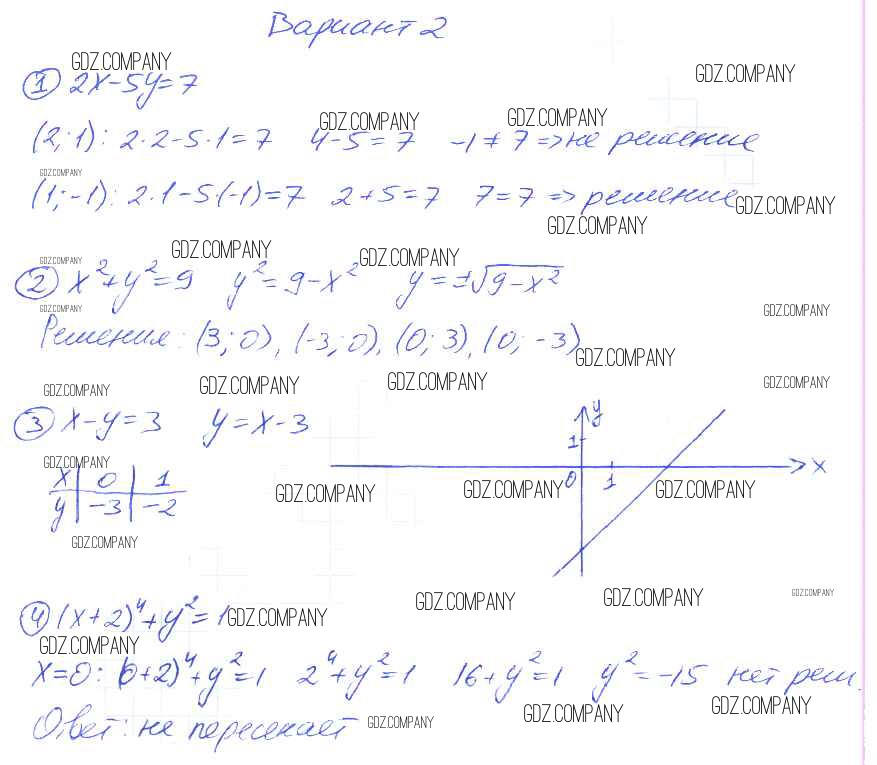 Вариант 2
GDZ.COMPANY
GDZ.COMPANY
① 2x-5y=7
GDZ.COMPANY GDZ.COMPANY
(2; 1): 2·2-5·1=7 4-5=7 -1≠7 => не решение
GDZ.COMPANY
(1; -1): 2·1-5·(-1)=7 2+5=7 7=7 => решение
GDZ.COMPANY
GDZ.COMPANY
GDZ.COMPANY GDZ.COMPANY GDZ.COMPANY
② x²+y²=9 y²=9-x² y=±√9-x²
GDZ.COMPANY GDZ.COMPANY
Решения: (3; 0), (-3; 0), (0; 3), (0; -3)
GDZ.COMPANY
GDZ.COMPANY GDZ.COMPANY GDZ.COMPANY GDZ.COMPANY
③ x-y=3 y=x-3
y
1
0 1 x
GDZ.COMPANY
x 0 1
y -3 -2
GDZ.COMPANY GDZ.COMPANY GDZ.COMPANY
GDZ.COMPANY
④ (x+2)⁴+y²=1
GDZ.COMPANY GDZ.COMPANY GDZ.COMPANY GDZ.COMPANY
GDZ.COMPANY
x=0: (0+2)⁴+y²=1 2⁴+y²=1 16+y²=1 y²=-15 нет реш.
GDZ.COMPANY GDZ.COMPANY
Ответ: не пересекает
GDZ.COMPANY